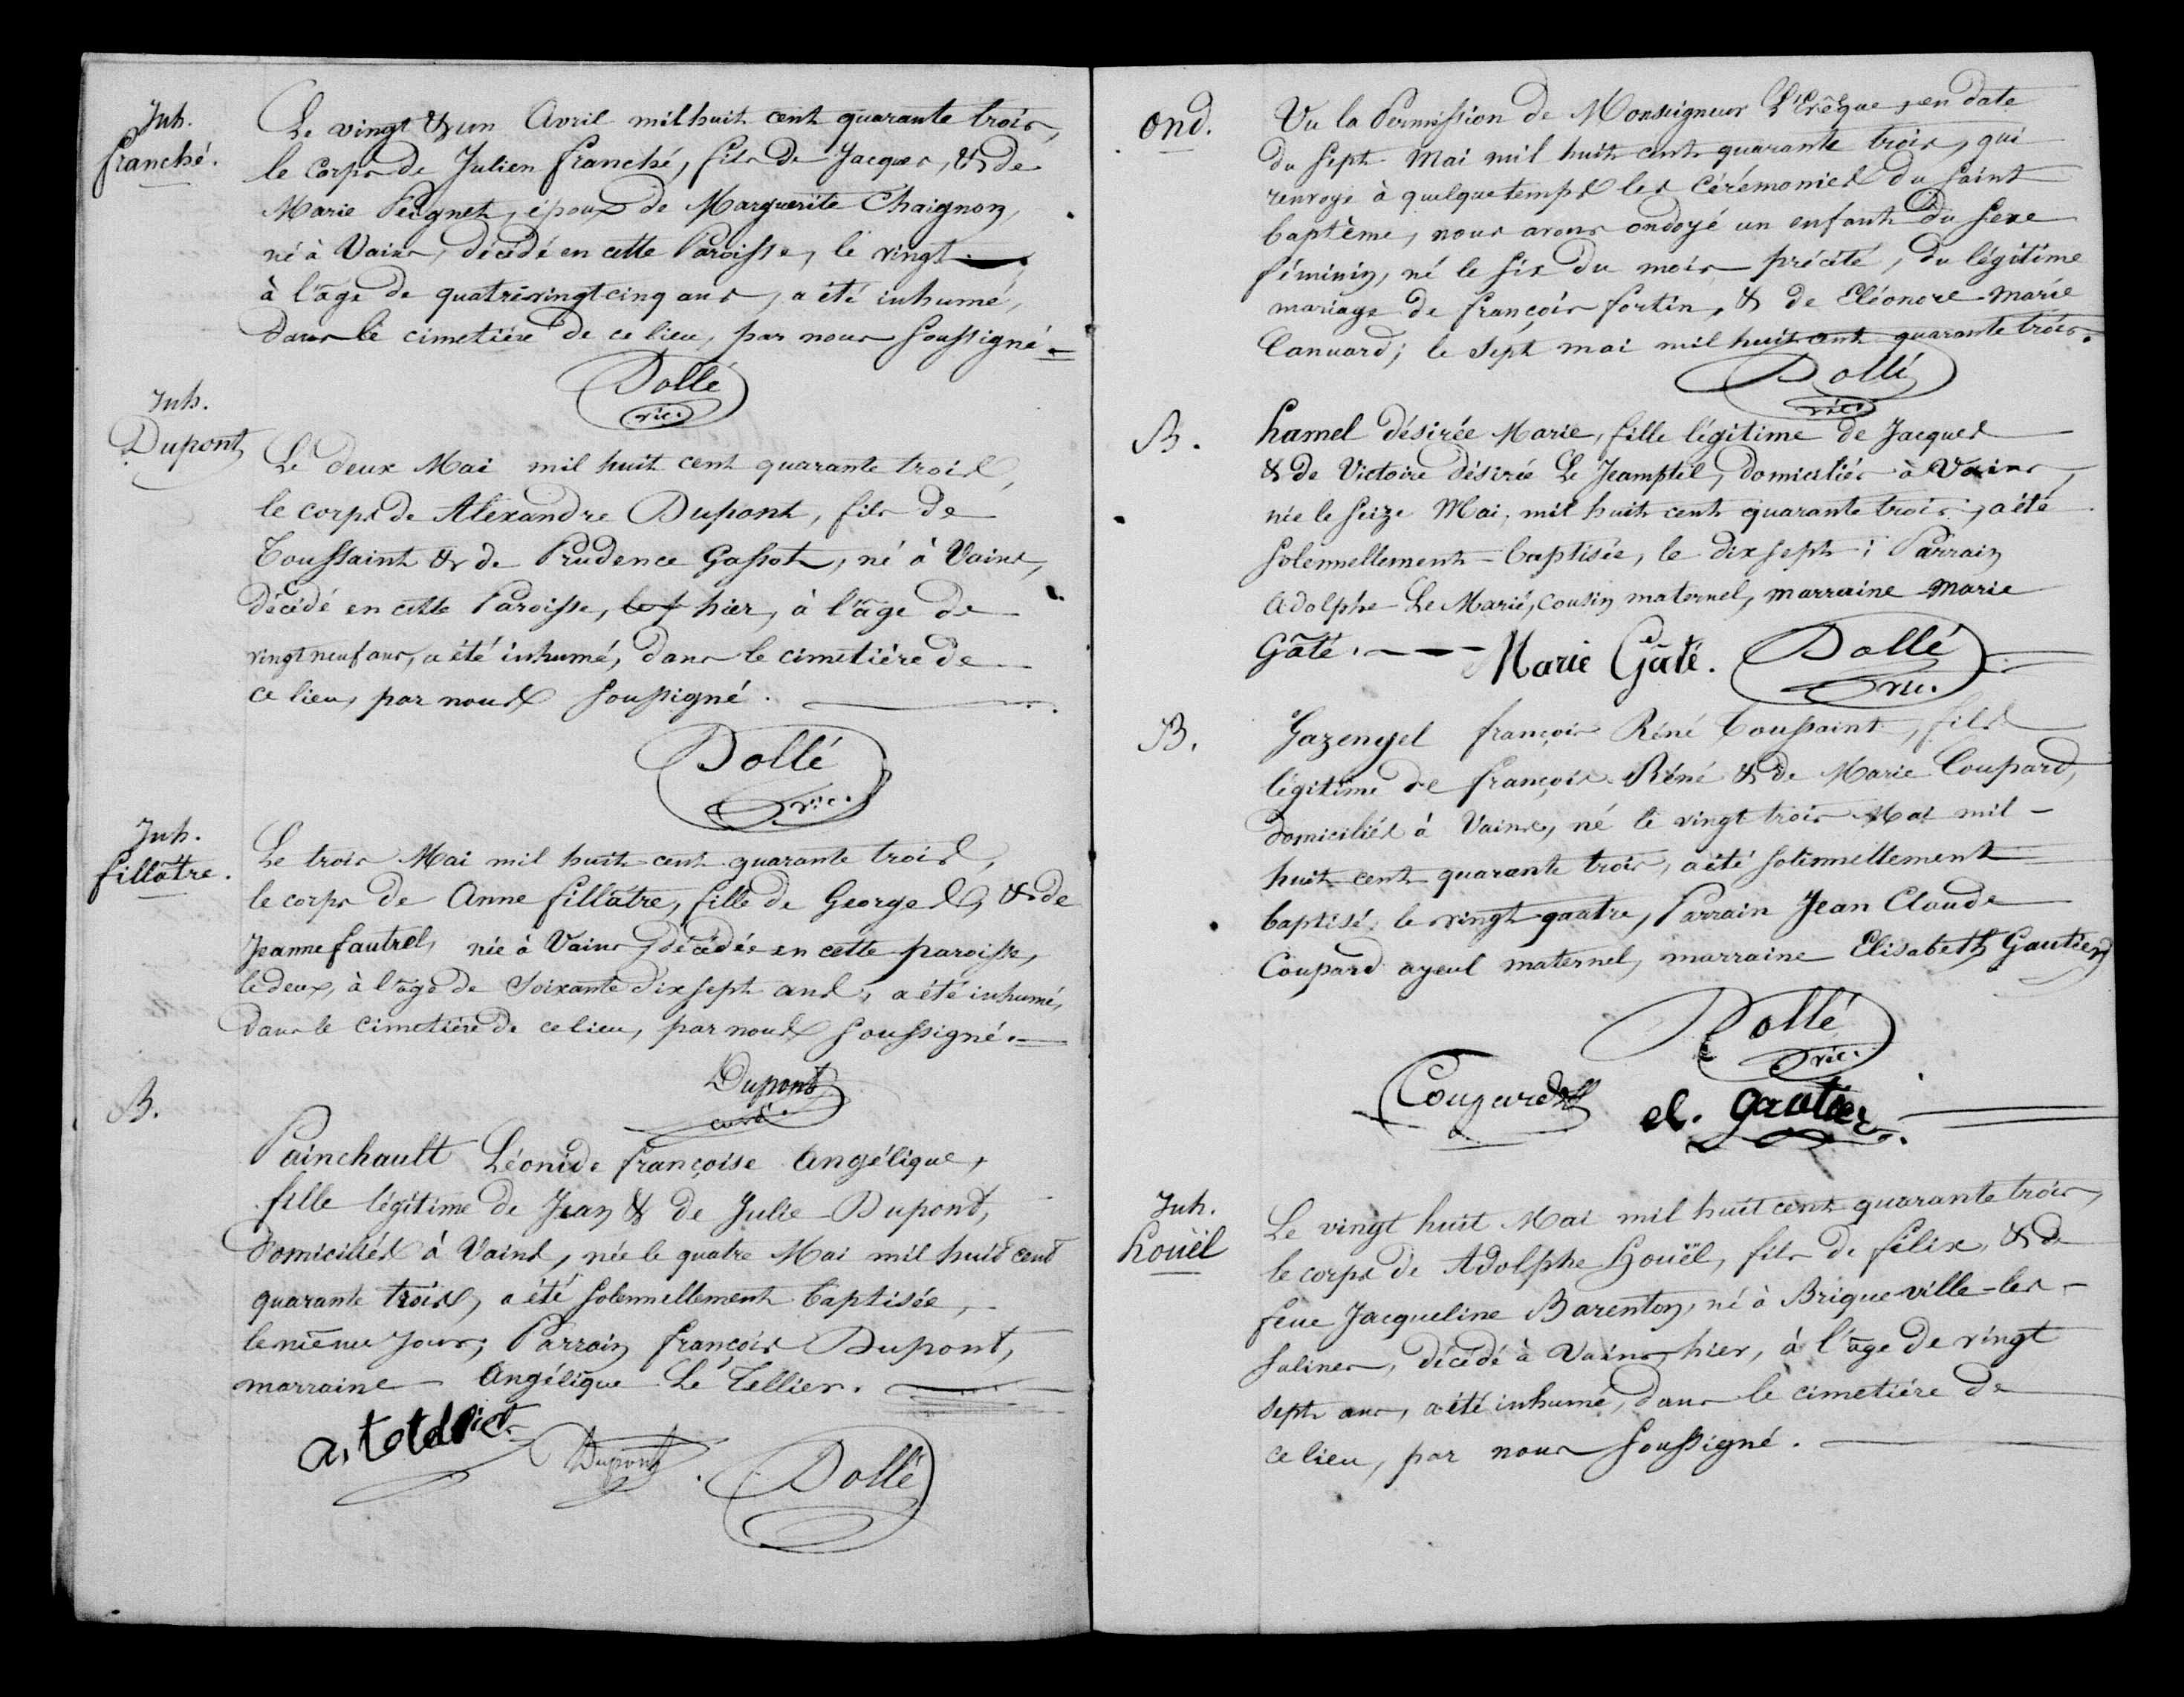 Inh.
franché.
Le vingt & un Avril mil huit cent quarante trois,
le corps de Julien franché, fils de Jacques, & de
Marie Peignet, époux de Marguerite Chaignon,
né à Vains, décédé en cette Paroisse, le vingt
à l'âge de quatrevingtcinq ans, a été inhumé,
dans le cimetière de ce lieu, par nous soussigné.
Dollé
vic.
Inh.
Dupont
Le deux Mai mil huit cent quarante trois,
le corps de Alexandre Dupont, fils de
Toussaint & de Prudence Gassot, né à Vains,
décédé en cette Paroisse, hier, à l'âge de
vingt neuf ans, a été inhumé, dans le cimetière de
ce lieu, par nous soussigné.
Dollé
vic.
Inh.
fillâtre.
Le trois Mai mil huit cent quarante trois,
le corps de Anne fillâtre, fille de Georges, & de
Jeanne fautrel, née à Vains, décédée en cette paroisse,
le deux, à l'âge de soixante dix sept ans, a été inhumé,
dans le cimetière de ce lieu, par nous soussigné.
Dupont
curé.
B.
Painchault Léonide françoise Angélique,
fille légitime de Jean & de Julie Dupont,
domiciliés à Vains, née le quatre Mai mil huit cent
quarante trois, a été solennellement baptisée,
le même jour; Parrain françois Dupont,
marraine Angélique Le Tellier.
Dupont
Dollé
ond.
Vu la Permission de Monseigneur L'Evêque, en date
du sept Mai mil huit cent quarante trois, qui
renvoye à quelque temps les Cérémonies du saint
baptème, nous avons ondoyé un enfant du sexe
féminin, né le six du mois précité, du légitime
mariage de françois fortin, & de Eléonore Marie
Canuard; le sept mai mil huit cent quarante trois.
Dollé
vic.
B.
hamel désirée Marie, fille légitime de Jacques
& de Victoire désirée Le Jamptel, domiciliés à Vains,
née le seize Mai, mil huit cent quarante trois, a été
solennellement baptisée, le dix sept; Parrain
Adolphe Le Marié, cousin maternel, marraine Marie
Gâté.
Marie Gâté.
Dollé
vic.
B.
Gazengel françois Réné Toussaint, fils
légitime de françois Réné & de Marie Coupard,
domiciliés à Vains, né le vingt trois Mai mil
huit cent quarante trois, a été solennellement
baptisé, le vingt quatre, Parrain Jean Claude
Coupard ayeul maternel, marraine Elisabeth Gautier
Dollé
vic.
el. gautier
Inh.
houël
Le vingt huit Mai mil huit cent quarante trois,
le corps de Adolphe Houël, fils de félix, & de
feue Jacqueline Barenton, né à Briqueville-les-
salines, décédé à Vains, hier, à l'âge de vingt
sept ans, a été inhumé, dans le cimetière de
ce lieu, par nous soussigné.